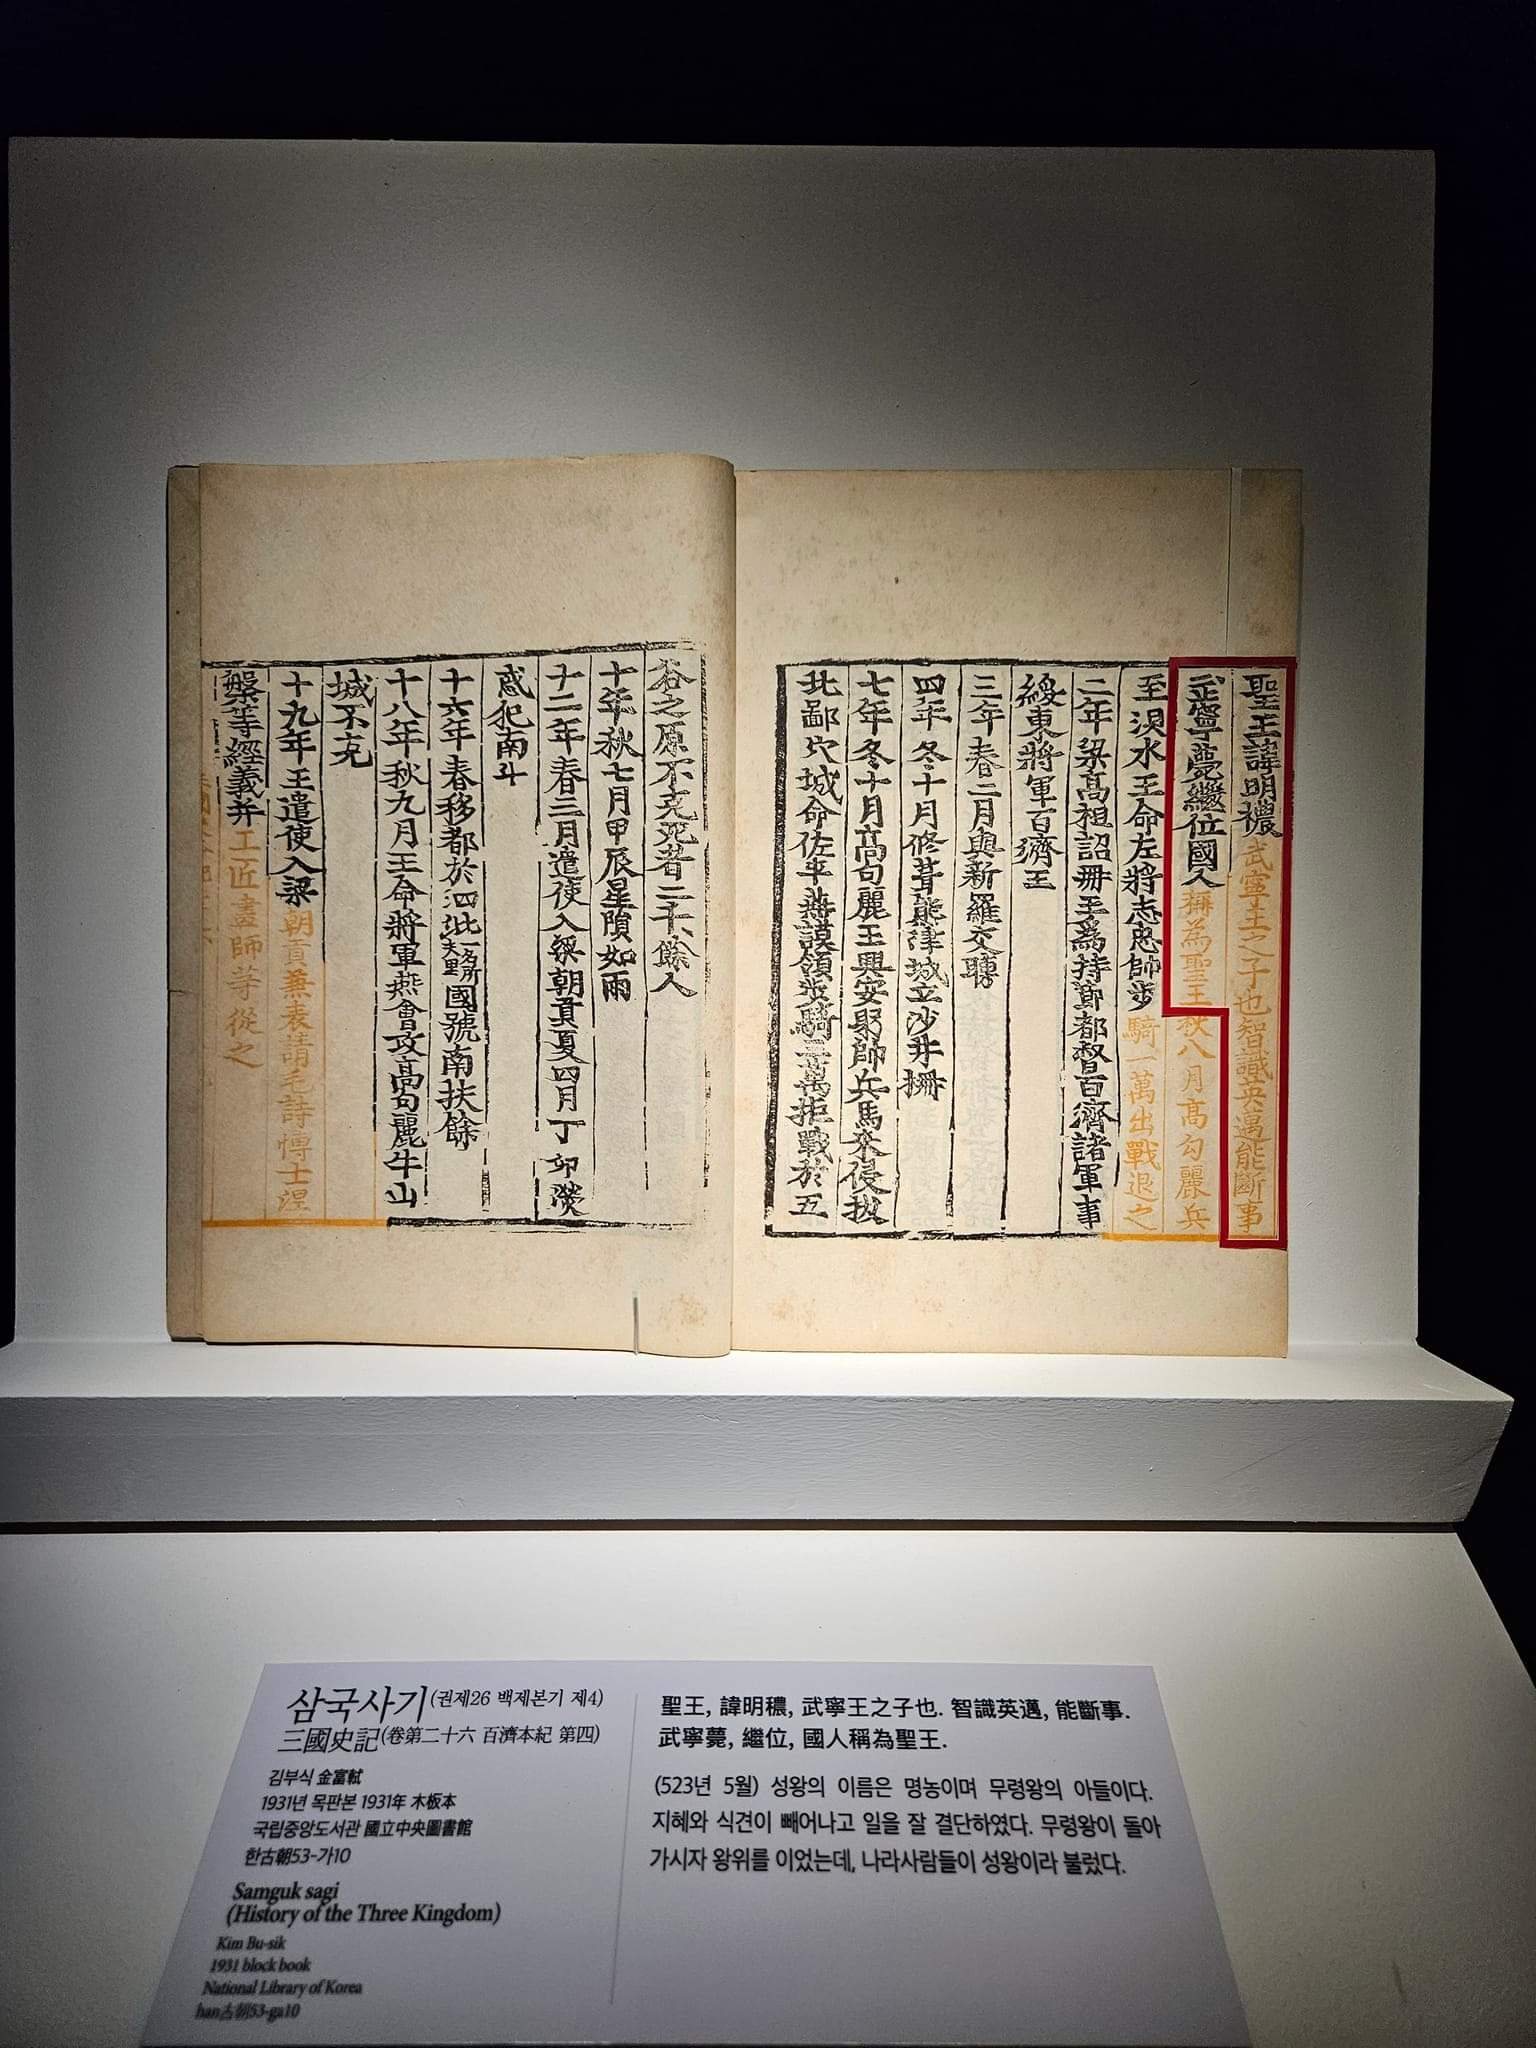 聖王諱明穠武寧王之子也智識英邁能斷事
武寧薨繼位國人稱為聖王秋八月高勾麗兵
至浿水王命左將志忠帥步騎一萬出戰退之
二年梁高祖詔冊王為持節都督百濟諸軍事
綏東將軍百濟王
三年春二月與新羅交聘
四年冬十月修葺熊津城立沙井柵
七年冬十月高句麗王興安躬帥兵馬來侵拔
北鄙穴城命佐平燕謨領步騎三萬拒戰於五
谷之原不克死者二千餘人
十年秋七月甲辰星隕如雨
十二年春三月遣使入梁朝貢夏四月丁卯熒
惑犯南斗
十六年春移都於泗沘一名所夫里國號南扶餘
十八年秋九月王命將軍燕會攻高句麗牛山
城不克
十九年王遣使入梁朝貢兼表請毛詩博士涅
槃等經義并工匠畫師等從之
삼국사기(권제26 백제본기 제4)
三國史記(卷第二十六 百濟本紀 第四)
김부식 金富軾
1931년 목판본 1931年 木板本
국립중앙도서관 國立中央圖書館
한古朝53-가10
Samguk sagi
(History of the Three Kingdom)
Kim Bu-sik
1931 block book
National Library of Korea
han古朝53-ga10
聖王, 諱明穠, 武寧王之子也. 智識英邁, 能斷事.
武寧薨, 繼位, 國人稱為聖王.
(523년 5월) 성왕의 이름은 명농이며 무령왕의 아들이다.
지혜와 식견이 빼어나고 일을 잘 결단하였다. 무령왕이 돌아
가시자 왕위를 이었는데, 나라사람들이 성왕이라 불렀다.